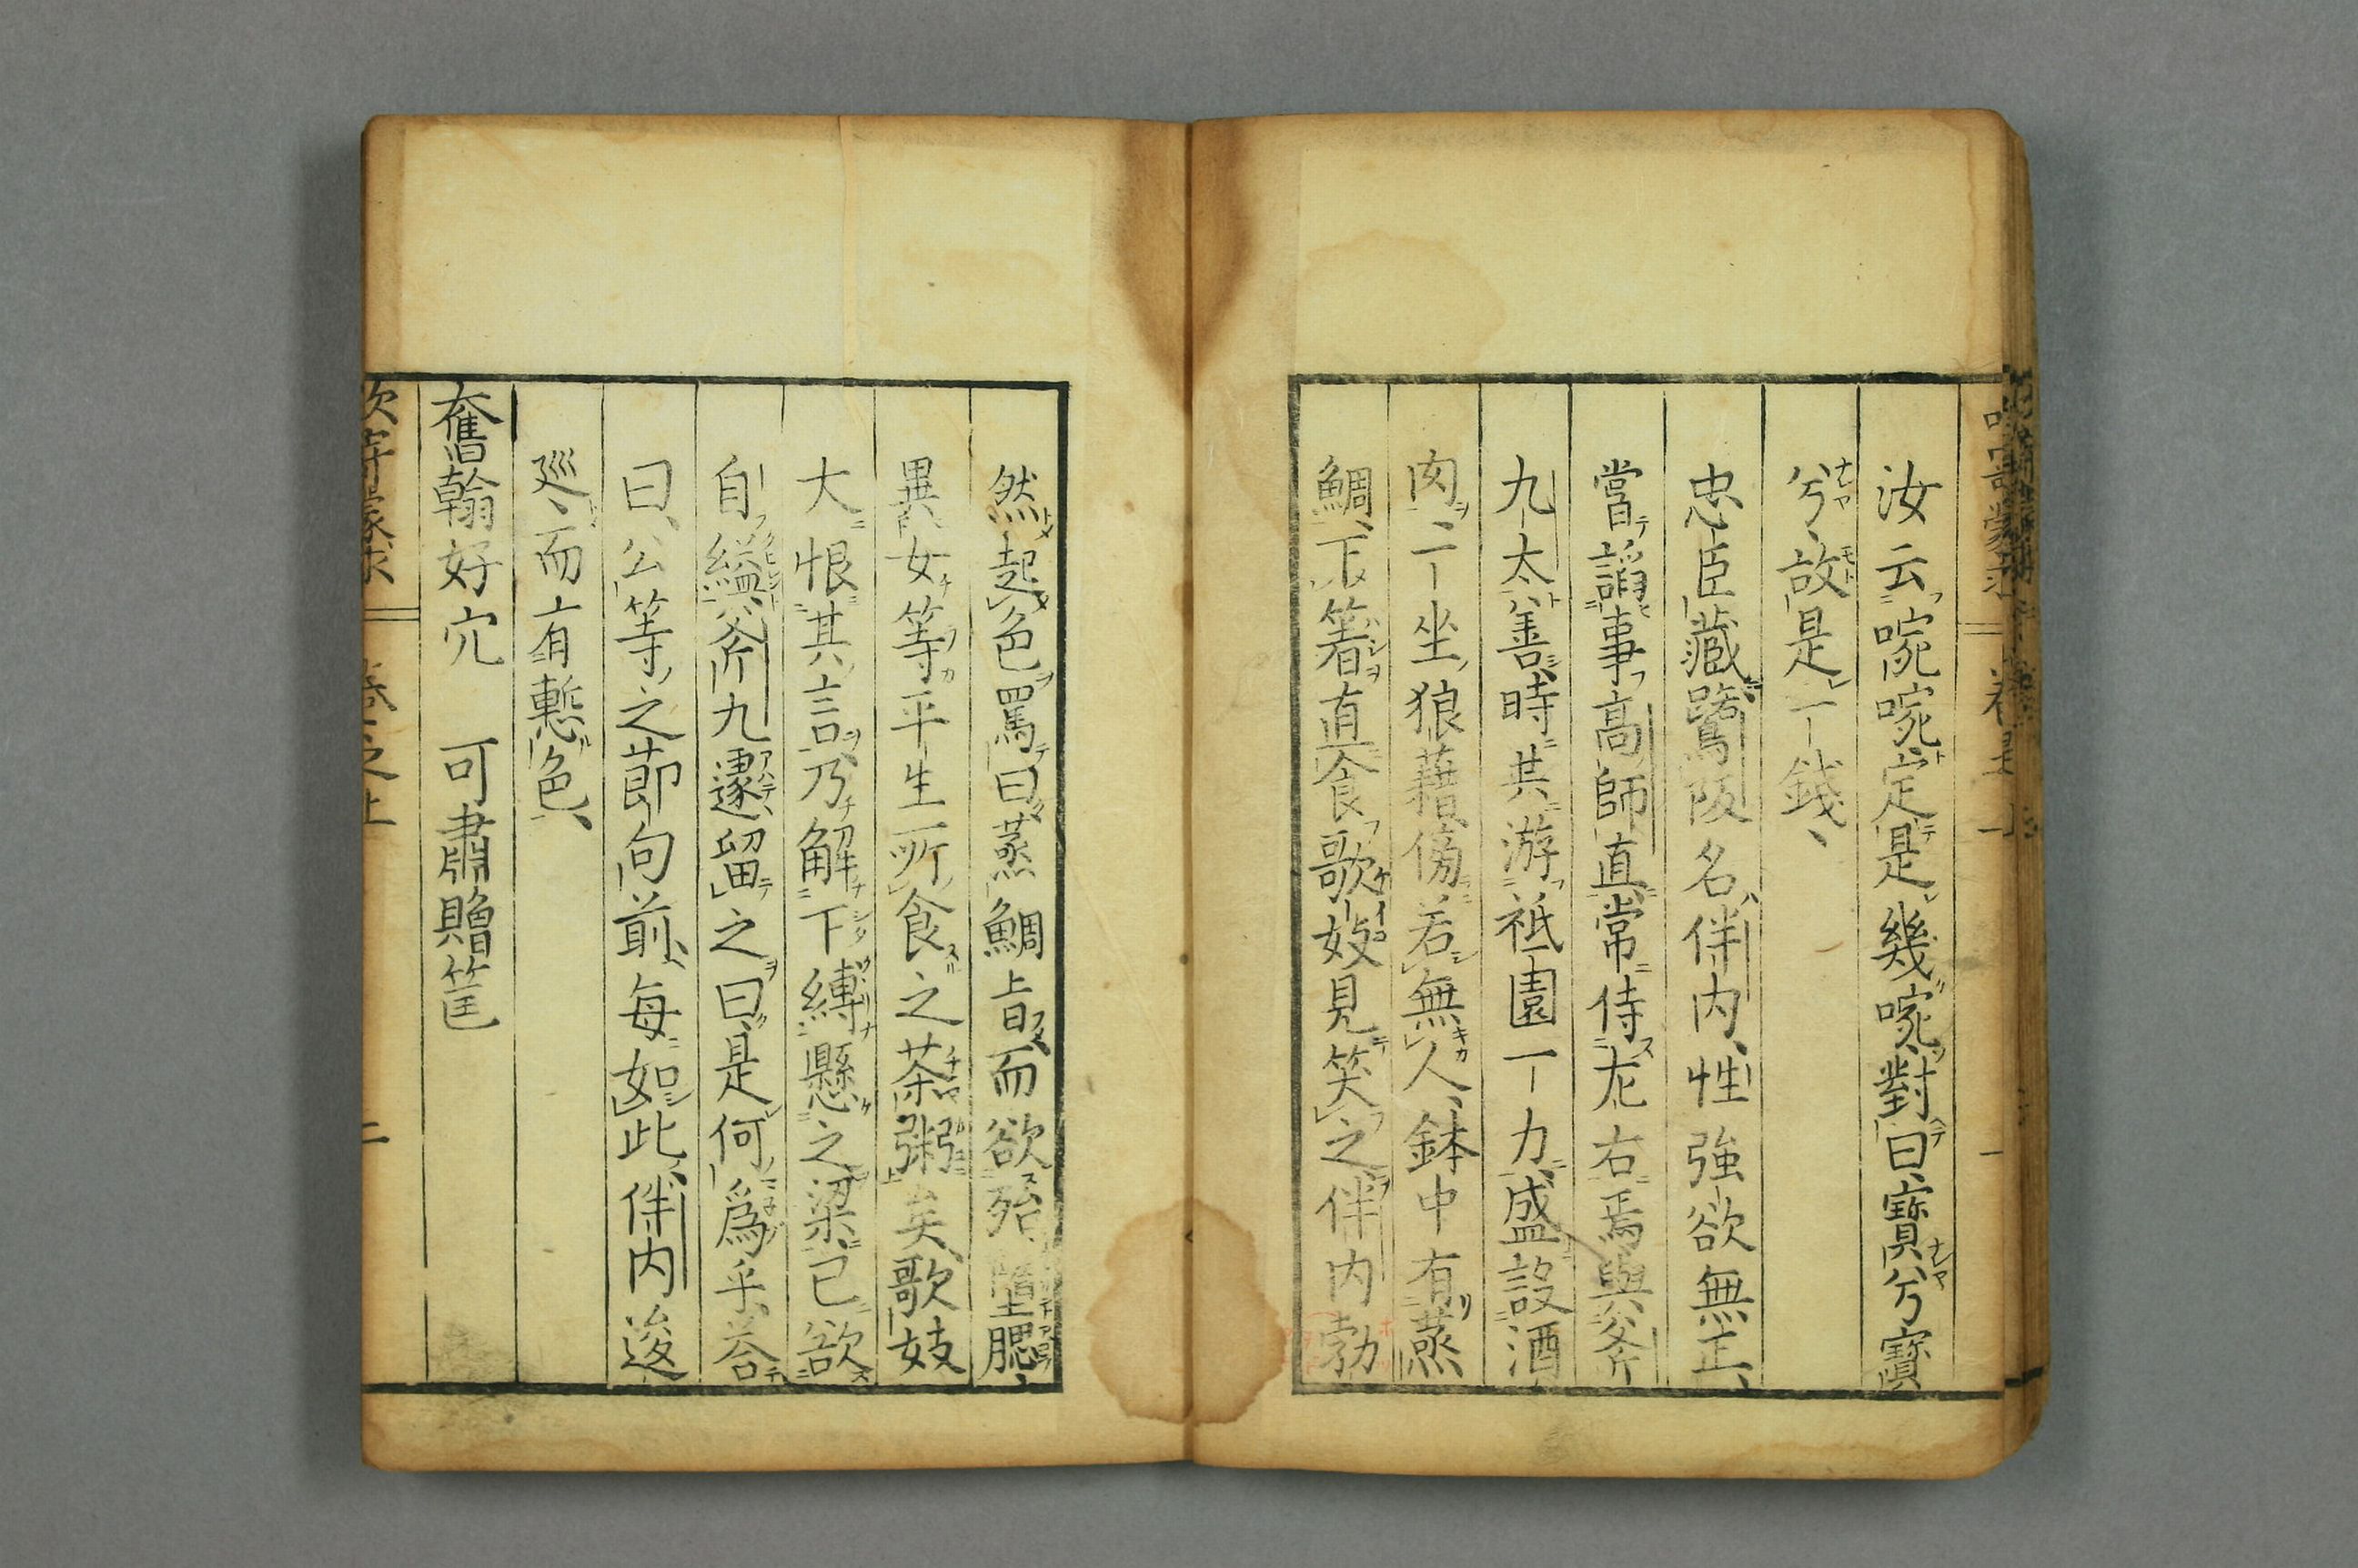 汝云啘啘定是幾啘對曰寶兮寶
兮故是一錢
忠臣藏鷺阪名伴内性強欲無正
嘗諂事高師直常侍左右焉與斧
九太善時共游祗園一力盛設酒
肉二一坐狼藉傍若無人鉢中有蒸
鯛下箸直食歌妓見笑之伴内勃
然起色罵曰蒸鯛旨而欲殆墮腮
異女等平生所食之茶粥矣歌妓
大恨其言乃解下縛懸之梁已欲
自縊斧九遽留之曰是何爲乎答
曰公等之莭句前每如此伴内逡
巡而有慙色
奮翰好穴　可肅贈筐
卷之上
二